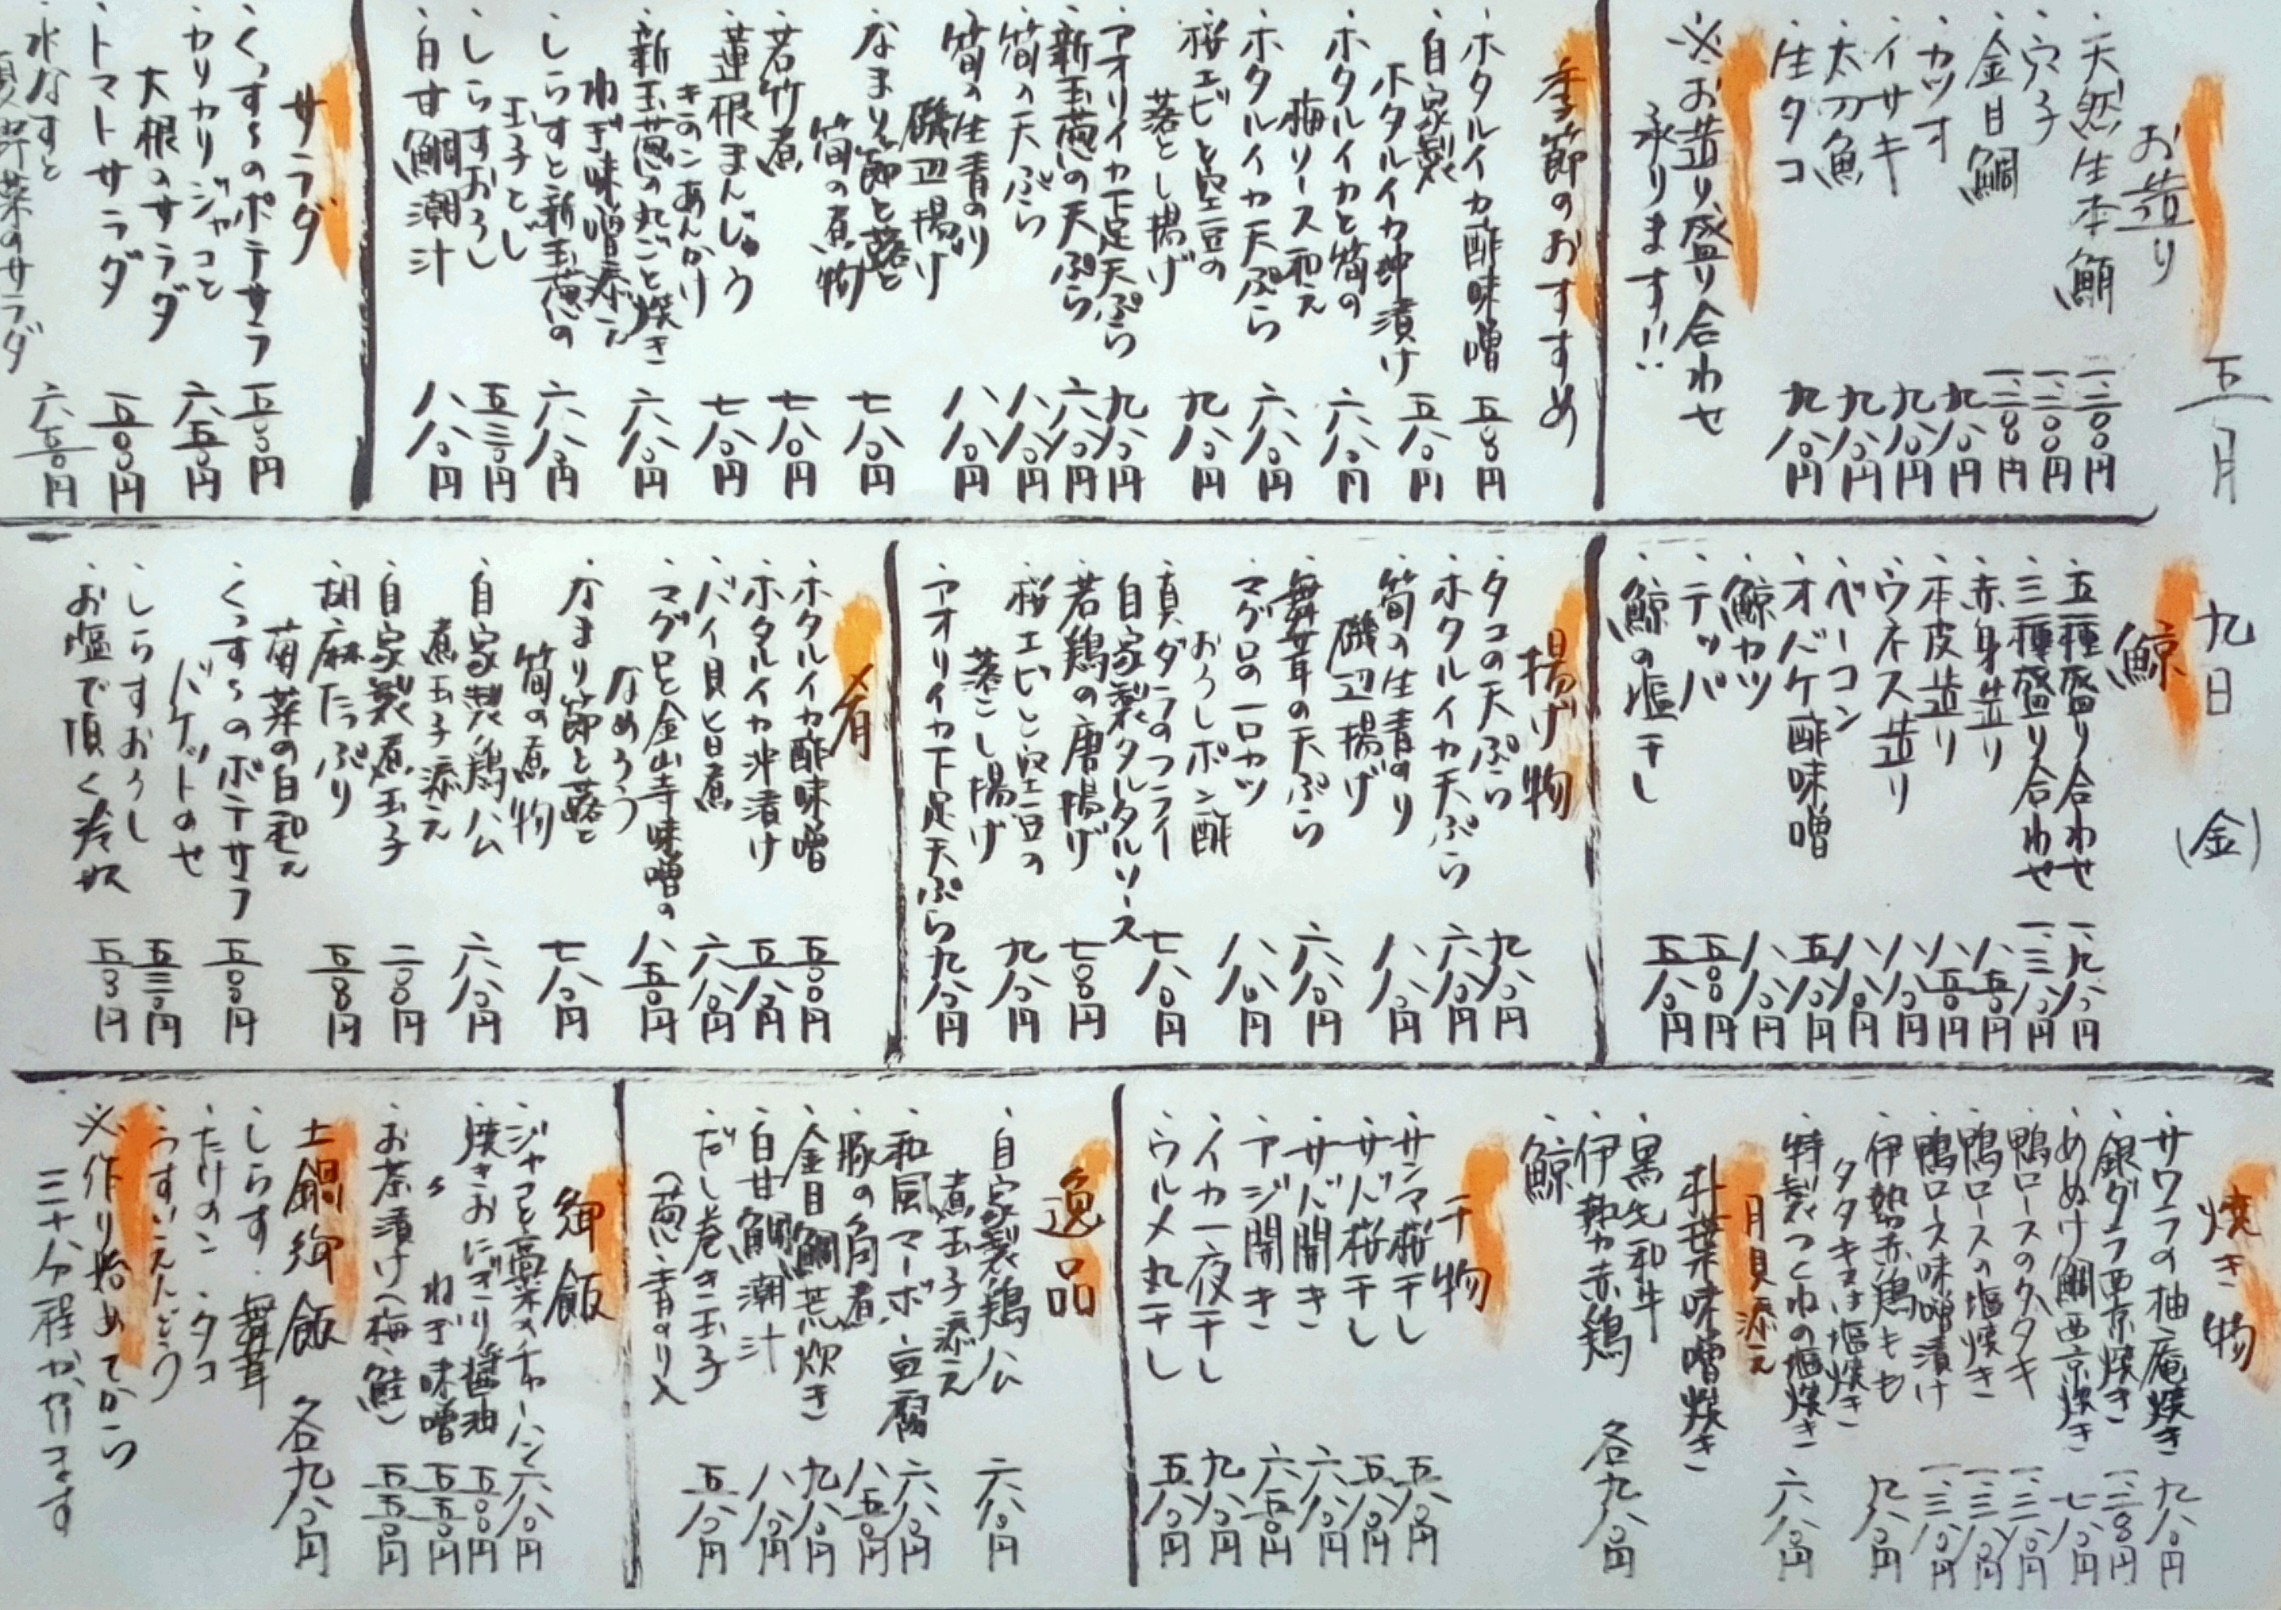 五月
九日
(金)
お造り
・天然生本鮪
一、三〇〇円
・穴子
一、二〇〇円
・金目鯛
・カツオ
九八〇円
・イサキ
九八〇円
・太刀魚
九八〇円
・生タコ
九八〇円
※お造り、盛り合わせ
承ります!!
季節のおすすめ
・ホタルイカ酢味噌
五〇〇円
・自家製
ホタルイカ沖漬け
五八〇円
・ホタルイカと筍の
梅リソース和え
六八〇円
・ホタルイカ天ぷら
六八〇円
・桜エビと空豆の
落とし揚げ
九八〇円
・アオリイカ下足天ぷら
九八〇円
・新玉葱の天ぷら
六八〇円
・筍の天ぷら
八八〇円
・筍の生青のり
磯辺揚げ
八八〇円
・なまり節と蕗と
筍の煮物
七八〇円
・若竹煮
七八〇円
・蓮根まんじゅう
きのこあんかけ
七八〇円
・新玉葱の丸ごと焼き
ねぎ味噌添え
六八〇円
・しらすと新玉葱の
玉子とじ
六八〇円
・しらすおろし
五三〇円
・白甘鯛潮汁
八八〇円
サラダ
・くっすぅのポテサラ
五〇〇円
・カリカリジャコと
大根のサラダ
六五〇円
・トマトサラダ
五〇〇円
・水なすと
野菜のサラダ
鯨
・五種盛り合わせ
一、九八〇円
・三種盛り合わせ
一、三八〇円
・赤身造り
八五〇円
・本皮造り
八五〇円
・ウネス造り
八八〇円
・ベーコン
八八〇円
・オバケ酢味噌
五八〇円
・鯨カツ
八八〇円
・テッパ
五〇〇円
・鯨の塩干し
五八〇円
揚げ物
・タコの天ぷら
九八〇円
・ホタルイカ天ぷら
六八〇円
・筍の生青のり
磯辺揚げ
八八〇円
・舞茸の天ぷら
六八〇円
・マグロの一口カツ
おろしポン酢
八八〇円
・真ダラのフライ
自家製タルタルソース
七八〇円
・若鶏の唐揚げ
七〇〇円
・桜エビと空豆の
落とし揚げ
九八〇円
・アオリイカ下足天ぷら
九八〇円
肴
・ホタルイカ酢味噌
五〇〇円
・ホタルイカ沖漬け
五八〇円
・バイ貝と旨煮
六八〇円
・マグロと金山寺味噌の
なめろう
八五〇円
・なまり節と蕗と
筍の煮物
七八〇円
・自家製鶏ハム
煮玉子添え
六八〇円
・自家製煮玉子
二〇〇円
・胡麻たっぷり
菊菜の白和え
五〇〇円
・くっすぅのポテサラ
バケットのせ
五〇〇円
・しらすおろし
五三〇円
・お塩で頂く冷奴
五〇〇円
焼き物
・サワラの柚庵焼き
九八〇円
・銀ダラ西京焼き
・めぬけ鯛西京焼き
・鴨ロースのタタキ
一、三八〇円
・鴨ロースの塩焼き
一、三八〇円
・鴨ロース味噌漬け
一、三八〇円
・伊勢赤鶏もも
タタキ又は塩焼き
九八〇円
・特製つくねの塩焼き
六八〇円
月見添え
朴葉味噌焼き
・黒毛和牛
・伊勢赤鶏
・鯨
各九八〇円
干物
・サンマ桜干し
五八〇円
・サバ桜干し
五八〇円
・サバ開き
六八〇円
・アジ開き
六五〇円
・イカ一夜干し
九八〇円
・ウルメ丸干し
五八〇円
逸品
・自家製鶏ハム
煮玉子添え
六八〇円
・和風マーボ豆腐
六八〇円
・豚の角煮
八五〇円
・金目鯛荒炊き
九八〇円
・白甘鯛潮汁
八八〇円
・だし巻き玉子
(葱・青のり入)
五八〇円
御飯
・ジャコと高菜のチャーハン
六八〇円
・焼きおにぎり醤油
五〇〇円
〃 ねぎ味噌
五五〇円
・お茶漬け(梅・鮭)
五五〇円
土鍋御飯 各九八〇円
・しらす・舞茸
・たけのこ・タコ
・うすいえんどう
※作り始めてから
三十分程かかります